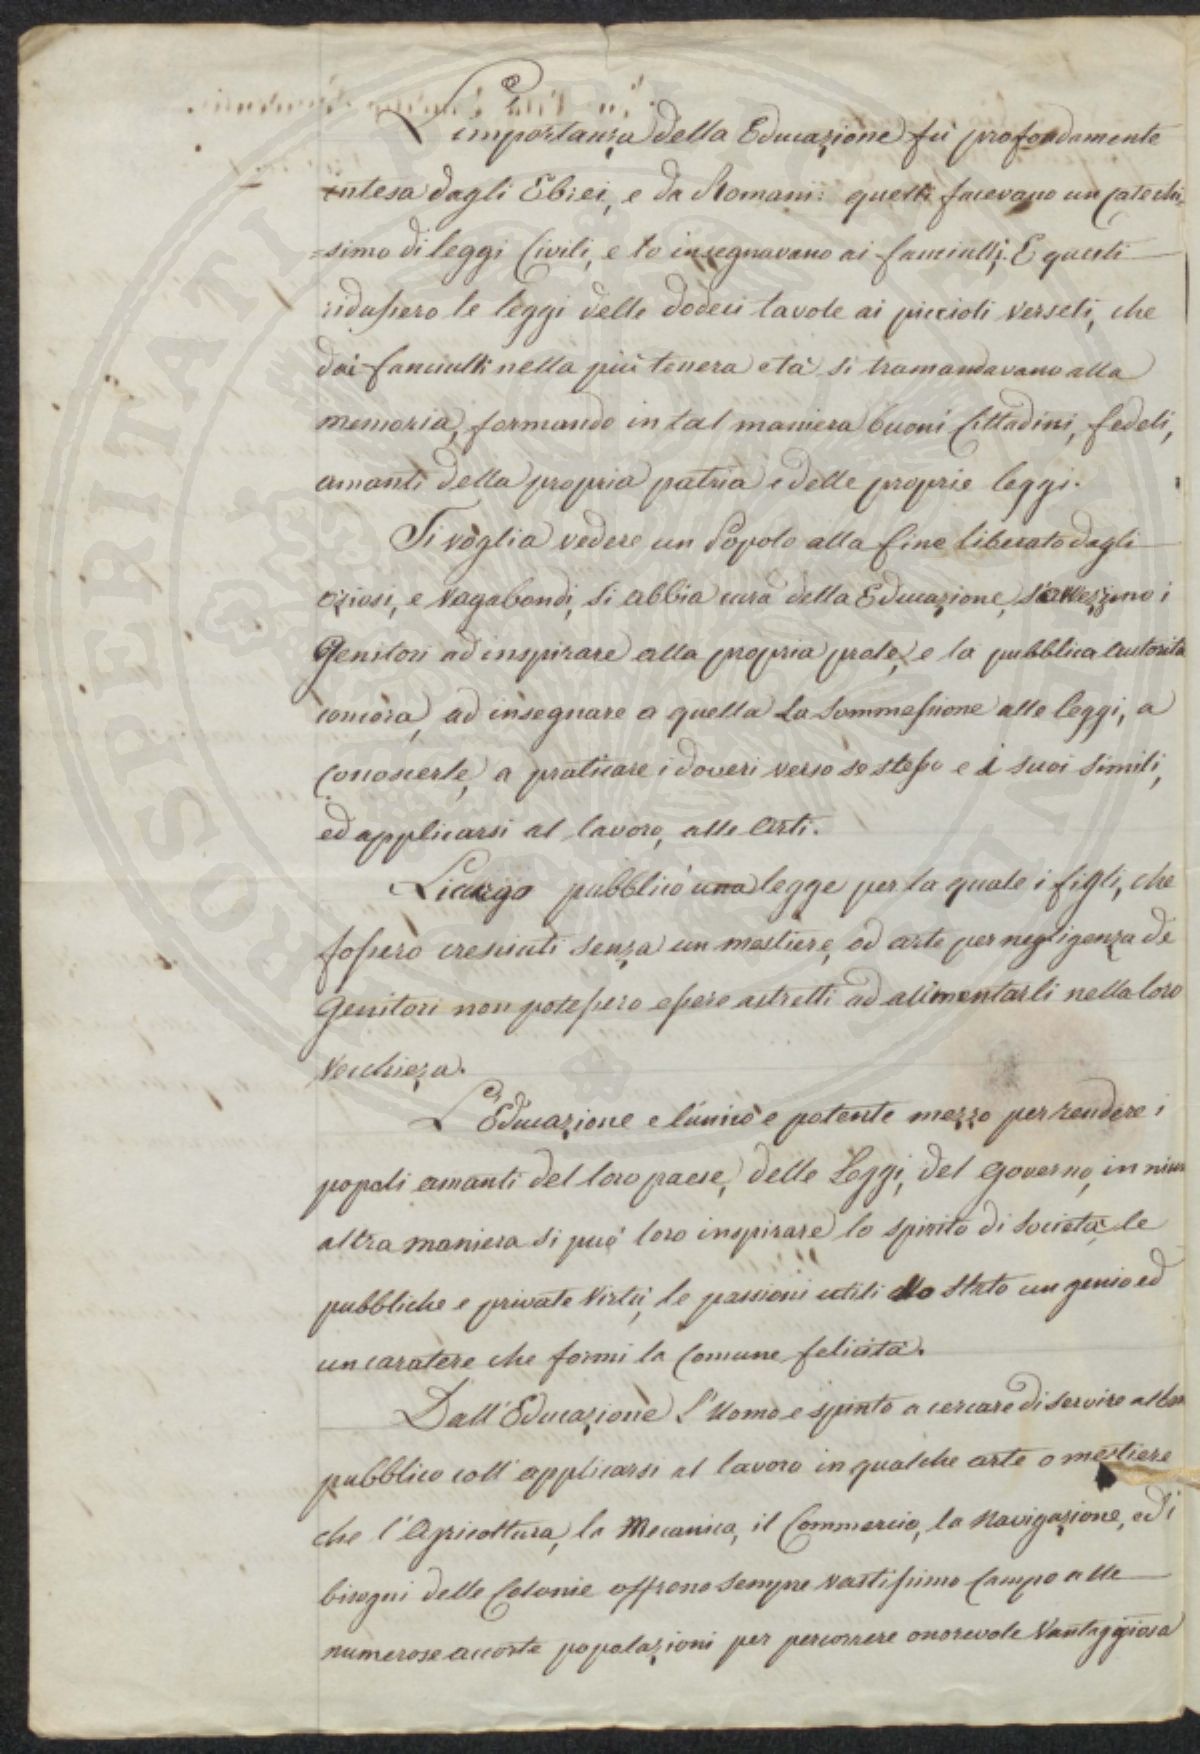 L'importanza della Educazione fù profondamente
intesa dagli Ebrei, e da Romani: quelli facevano un Catechi-
=simo di leggi Civili, e lo insegnavano ai fanciulli; E questi
ridussero le leggi delle dodeci tavole ai piccioli verseti, che
dai fanciulli nella più tenera età si tramandavano alla
memoria, formando in tal maniera buoni Cittadini, fedeli,
amanti della propria patria e delle proprie leggi.
Si voglia vedere un Popolo alla fine liberato dagli
oziosi, e vagabondi, si abbia cura della Educazione, s'avvezzino i
Genitori ad inspirare alla propria prole, e la pubblica Autorità
concora, ad insegnare a quella la sommessione alle leggi, a
conoscerle, a praticare i doveri verso se stesso e i suoi simili,
ed applicarsi al lavoro, alle Arti.
Licurgo pubblicò una legge per la quale i figli, che
fossero cresciuti senza un mestiere, od arte per negligenza de
Genitori non potessero essere astretti ad alimentarli nella loro
Vecchieza.
L'Educazione e l'unico e potente mezzo per rendere i
popoli amanti del loro paese, delle Leggi, del Governo, in niun
altra maniera si può loro inspirare lo spirito di Società le
pubbliche e private Virtù, le passioni utili allo Stato un genio ed
un caratere che formi la Comune felicità.
Dall'Educazione l'Uomo e spinto a cercare di servire al ben
pubblico coll'applicarsi al lavoro in qualche arte o mestiere
che l'Agricoltura, la Mecanica, il Commercio, la Navigazione, ed i
bisogni delle Colonie offrono sempre vastissimo Campo alle
numerose accorte popolazioni per percorrere onorevole Vantaggiosa
PROSPERITATI PUBLICAE